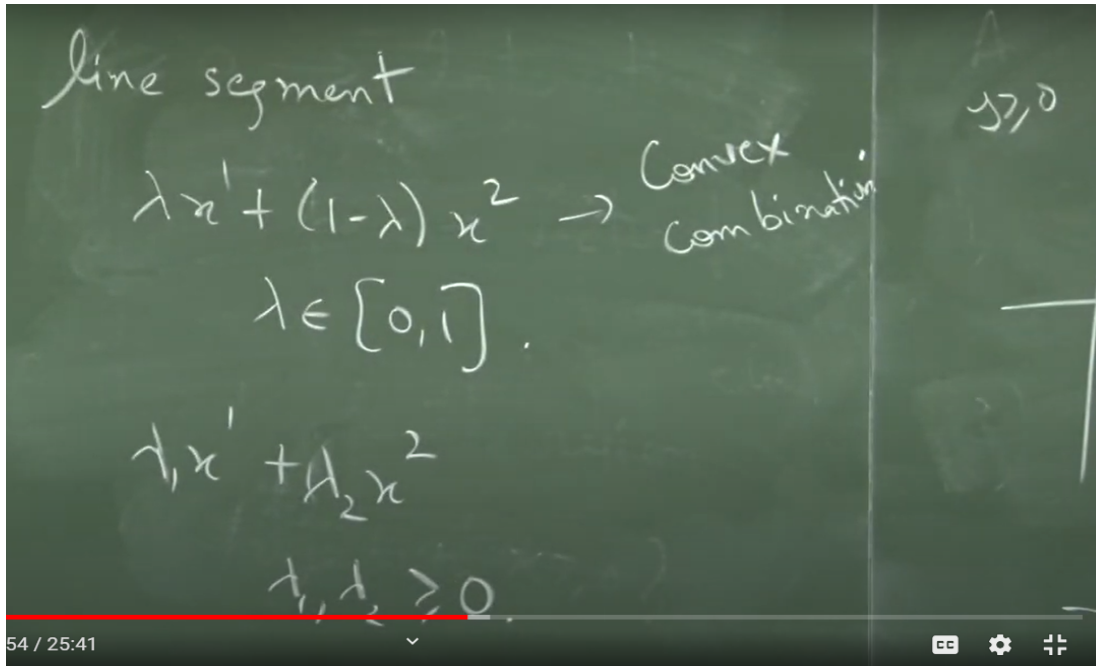 line segment
λx¹ + (1-λ) x² → Convex combination
λ ∈ [0,1].
λ₁x¹ + λ₂x²
λ₁, λ₂ ≥ 0.
y ≥ 0
54 / 25:41
CC